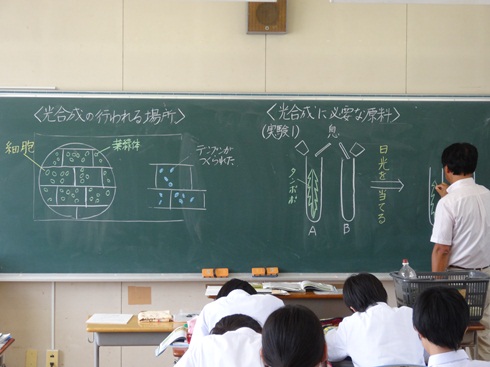 〈光合成の行われる場所〉
細胞
葉緑体
デンプンが
つくられた
〈光合成に必要な原料〉
(実験1)
息
タンポポ
A
B
日光を当てる